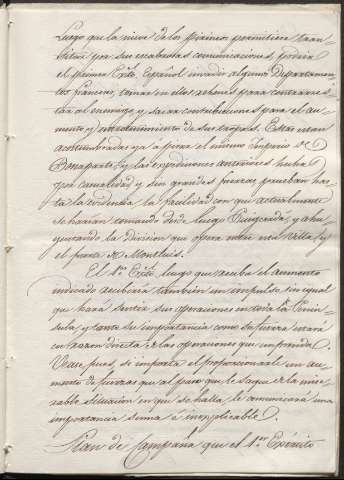 Luego que la nieve de los Pirineos permitiese tran-
sitar por sus escabrosas comunicaciones podria
el primer Exto. Español invadir algunos Departamen-
tos franceses, tomar en ellos rehenes para contrarres-
tar al enemigo, y sacar contribuciones para el au-
mento y entretenimiento de sus tropas. Estas estan
acostumbradas ya a pisar el nuevo imperio de
Bonaparte, y las expediciones anteriores hechas
por casualidad y sin grandes fuerzas prueban has-
ta la evidencia la facilidad con que actualmente
se harian tomando desde luego Puigcerdá, y ahu-
yentando la division que opera entre esta villa y
el fuerte de Montluis.
El 1er. Exto. luego que reciba el aumento
indicado recibirá tambien un impulso sin igual
que hará sentir sus operaciones en toda la Penin-
sula, y tanto su importancia como su fuerza estará
en razon directa a las operaciones que emprenda.
Vease pues, si importa el proporcionarle un au-
mento de fuerzas que al paso que le saque de la mise-
rable situacion en que se halla, le comunicará una
importancia suma e inexplicable.
Plan de Campaña que el 1er. Exército